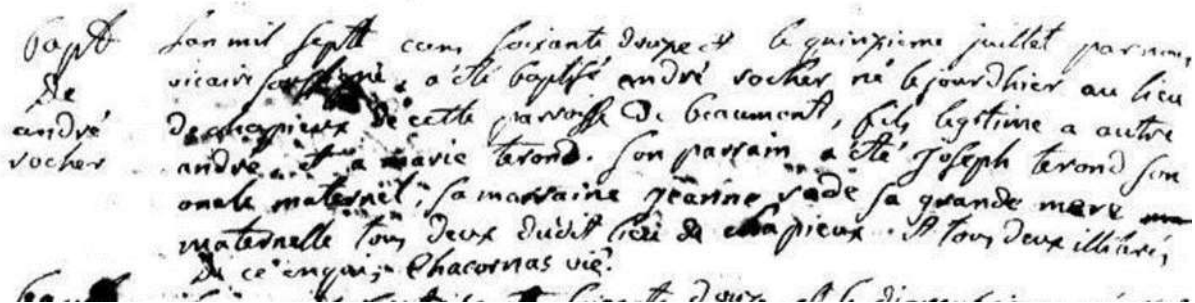 bapt
De
andré
rocher
L'an mil sept cens soixante douze et le quinzieme juillet par nous
vicaire soussigné, a été baptisé andré rocher né le jourdhier au lieu
de chapieux de cette parroisse De beaumont, fils legitime a autre
andre et a marie terond. Son parrain a été Joseph terond son
oncle maternel, sa marraine jeanne sade sa grande mere
maternelle tous deux dudit lieu de chapieux. Et tous deux illiterés
De ce enquis, Chacornas vic.